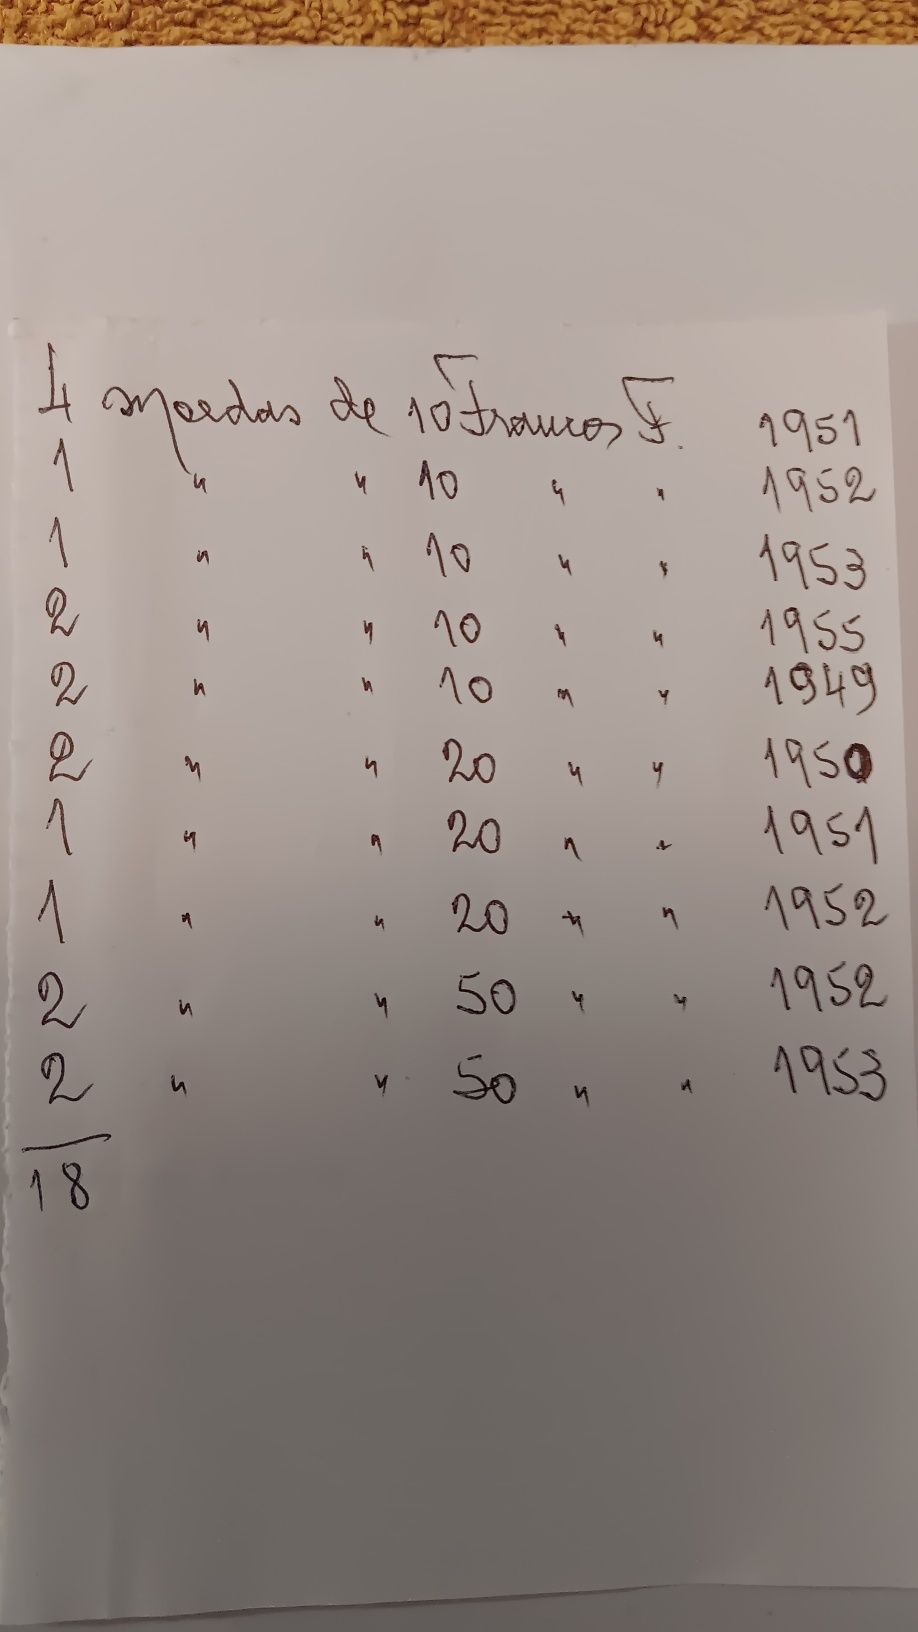 4 moedas de 10 Francos F. 1951
1 " " 10 " " 1952
1 " " 10 " " 1953
2 " " 10 " " 1955
2 " " 10 " " 1949
2 " " 20 " " 1950
1 " " 20 " " 1951
1 " " 20 " " 1952
2 " " 50 " " 1952
2 " " 50 " " 1953
18